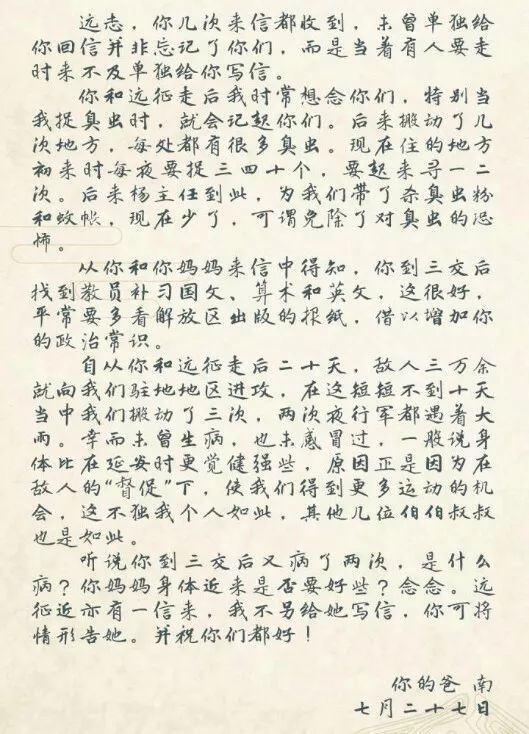 远志，你几次来信都收到，未曾单独给
你回信并非忘记了你们，而是当着有人要走
时来不及单独给你写信。
你和远征走后我时常想念你们，特别当
我捉臭虫时，就会记起你们。后来搬动了几
次地方，每处都有很多臭虫。现在住的地方
初来时每夜要捉三四十个，要起来寻一二
次。后来杨主任到此，为我们带了杀臭虫粉
和蚊帐，现在少了，可谓免除了对臭虫的恐
怖。
从你和你妈妈来信中得知，你到三交后
找到教员补习国文、算术和英文，这很好，
平常要多看解放区出版的报纸，借以增加你
的政治常识。
自从你和远征走后二十天，敌人三万余
就向我们驻地地区进攻，在这短短不到十天
当中我们搬动了三次，两次夜行军都遇着大
雨。幸而未曾生病，也未感冒过，一般说身
体比在延安时更觉健强些，原因正是因为在
敌人的“督促”下，使我们得到更多运动的机
会，这不独我个人如此，其他几位伯伯叔叔
也是如此。
听说你到三交后又病了两次，是什么
病？你妈妈身体近来是否要好些？念念。远
征近亦有一信来，我不另给她写信，你可将
情形告她。并祝你们都好！
你的爸 南
七月二十七日